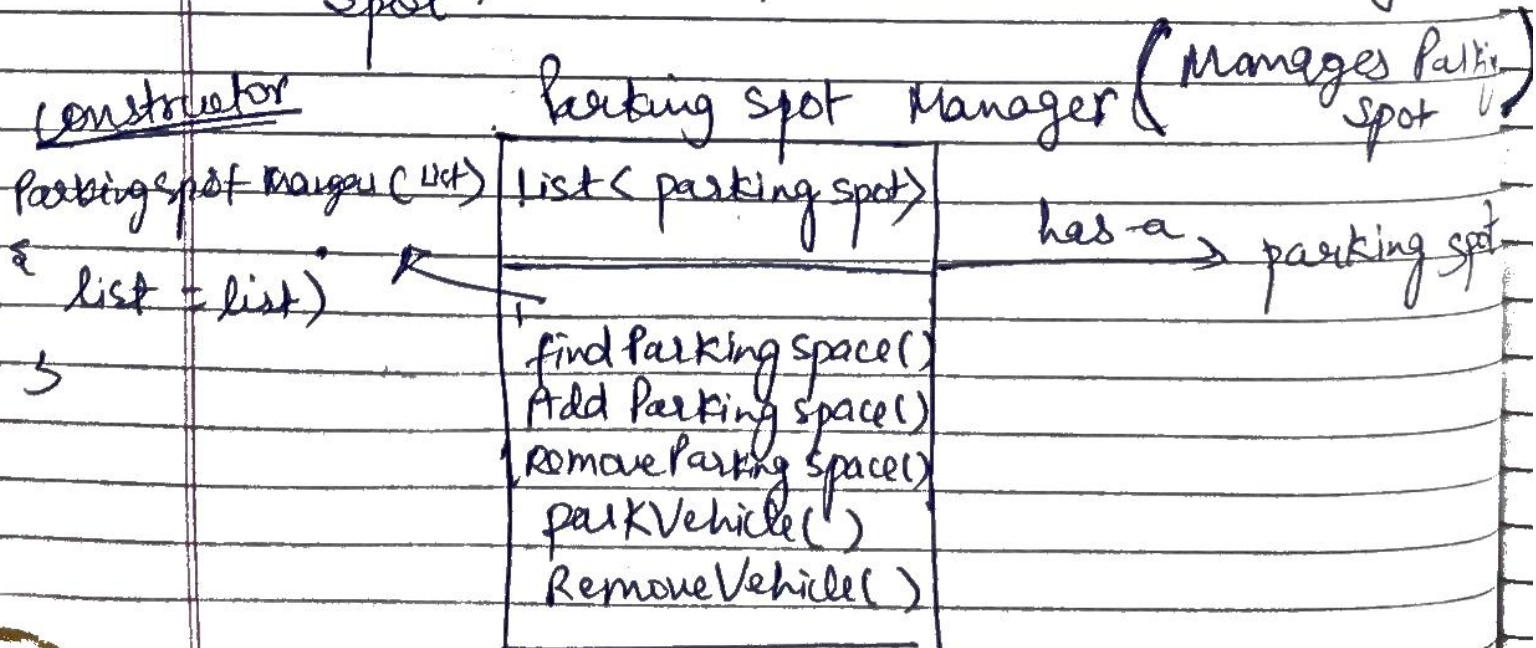 spot
constructor
Parking spot Manager (Manages Parking
spot)
Parkingspot Manger (List)
{
list = list)
}
List< parking spot>
has-a
parking spot
find Parking space()
Add Parking space()
Remove Parking space()
parkVehicle()
RemoveVehicle()